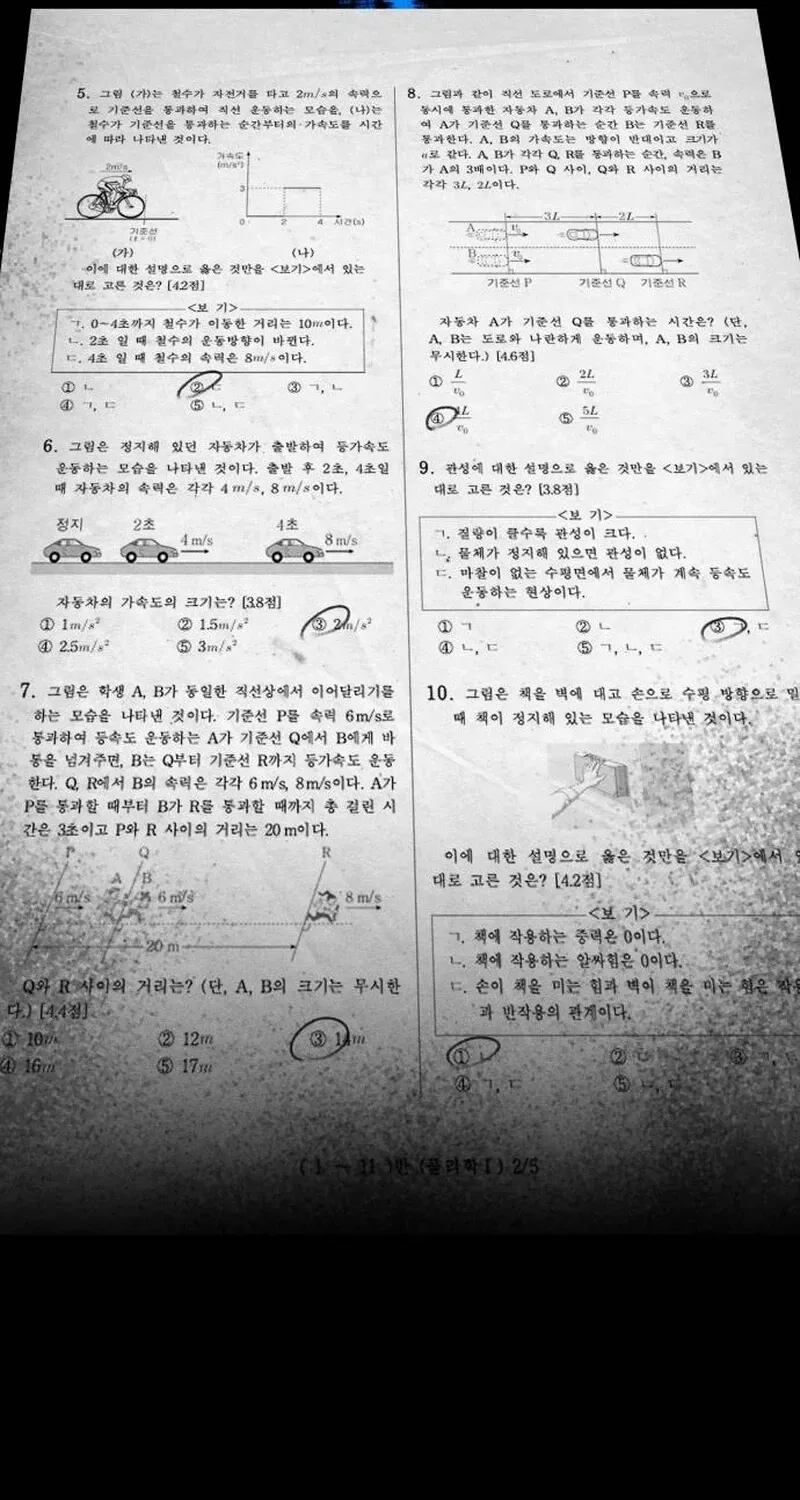 5. 그림 (가)는 철수가 자전거를 타고 2m/s의 속력으
로 기준선을 통과하여 직선 운동하는 모습을, (나)는
철수가 기준선을 통과하는 순간부터의 가속도를 시간
에 따라 나타낸 것이다.
2m/s
기준선
(t = 0)
(가)
가속도
(m/s²)
3
0 2 4 시간(s)
(나)
이에 대한 설명으로 옳은 것만을 <보기>에서 있는
대로 고른 것은? [4.2점]
<보 기>
ㄱ. 0~4초까지 철수가 이동한 거리는 10m이다.
ㄴ. 2초 일 때 철수의 운동방향이 바뀐다.
ㄷ. 4초 일 때 철수의 속력은 8m/s이다.
① ㄴ ② ㄷ ③ ㄱ, ㄴ
④ ㄱ, ㄷ ⑤ ㄴ, ㄷ
6. 그림은 정지해 있던 자동차가 출발하여 등가속도
운동하는 모습을 나타낸 것이다. 출발 후 2초, 4초일
때 자동차의 속력은 각각 4 m/s, 8 m/s이다.
정지 2초 4초
4 m/s 8 m/s
자동차의 가속도의 크기는? [3.8점]
① 1m/s² ② 1.5m/s² ③ 2m/s²
④ 2.5m/s² ⑤ 3m/s²
7. 그림은 학생 A, B가 동일한 직선상에서 이어달리기를
하는 모습을 나타낸 것이다. 기준선 P를 속력 6m/s로
통과하여 등속도 운동하는 A가 기준선 Q에서 B에게 바
통을 넘겨주면, B는 Q부터 기준선 R까지 등가속도 운동
한다. Q, R에서 B의 속력은 각각 6 m/s, 8m/s이다. A가
P를 통과할 때부터 B가 R를 통과할 때까지 총 걸린 시
간은 3초이고 P와 R 사이의 거리는 20 m이다.
P Q R
A B
6 m/s 6 m/s 8 m/s
20 m
Q와 R 사이의 거리는? (단, A, B의 크기는 무시한
다.) [4.4점]
① 10m ② 12m ③ 14m
④ 16m ⑤ 17m
8. 그림과 같이 직선 도로에서 기준선 P를 속력 v₀으로
동시에 통과한 자동차 A, B가 각각 등가속도 운동하
여 A가 기준선 Q를 통과하는 순간 B는 기준선 R를
통과한다. A, B의 가속도는 방향이 반대이고 크기가
a로 같다. A, B가 각각 Q, R를 통과하는 순간, 속력은 B
가 A의 3배이다. P와 Q 사이, Q와 R 사이의 거리는
각각 3L, 2L이다.
3L 2L
A v₀
B v₀
기준선 P 기준선 Q 기준선 R
자동차 A가 기준선 Q를 통과하는 시간은? (단,
A, B는 도로와 나란하게 운동하며, A, B의 크기는
무시한다.) [4.6점]
① L/v₀ ② 2L/v₀ ③ 3L/v₀
④ 4L/v₀ ⑤ 5L/v₀
9. 관성에 대한 설명으로 옳은 것만을 <보기>에서 있는
대로 고른 것은? [3.8점]
<보 기>
ㄱ. 질량이 클수록 관성이 크다.
ㄴ. 물체가 정지해 있으면 관성이 없다.
ㄷ. 마찰이 없는 수평면에서 물체가 계속 등속도
운동하는 현상이다.
① ㄱ ② ㄴ ③ ㄱ, ㄷ
④ ㄴ, ㄷ ⑤ ㄱ, ㄴ, ㄷ
10. 그림은 책을 벽에 대고 손으로 수평 방향으로 밀
때 책이 정지해 있는 모습을 나타낸 것이다.
이에 대한 설명으로 옳은 것만을 <보기>에서
대로 고른 것은? [4.2점]
<보 기>
ㄱ. 책에 작용하는 중력은 0이다.
ㄴ. 책에 작용하는 알짜힘은 0이다.
ㄷ. 손이 책을 미는 힘과 벽이 책을 미는 힘은 작용
과 반작용의 관계이다.
① ㄴ ② ㄷ ③ ㄱ,
④ ㄱ, ㄷ ⑤ ㄴ, ㄷ
( 1 ~ 11 )반 (물리학Ⅰ) 2/5